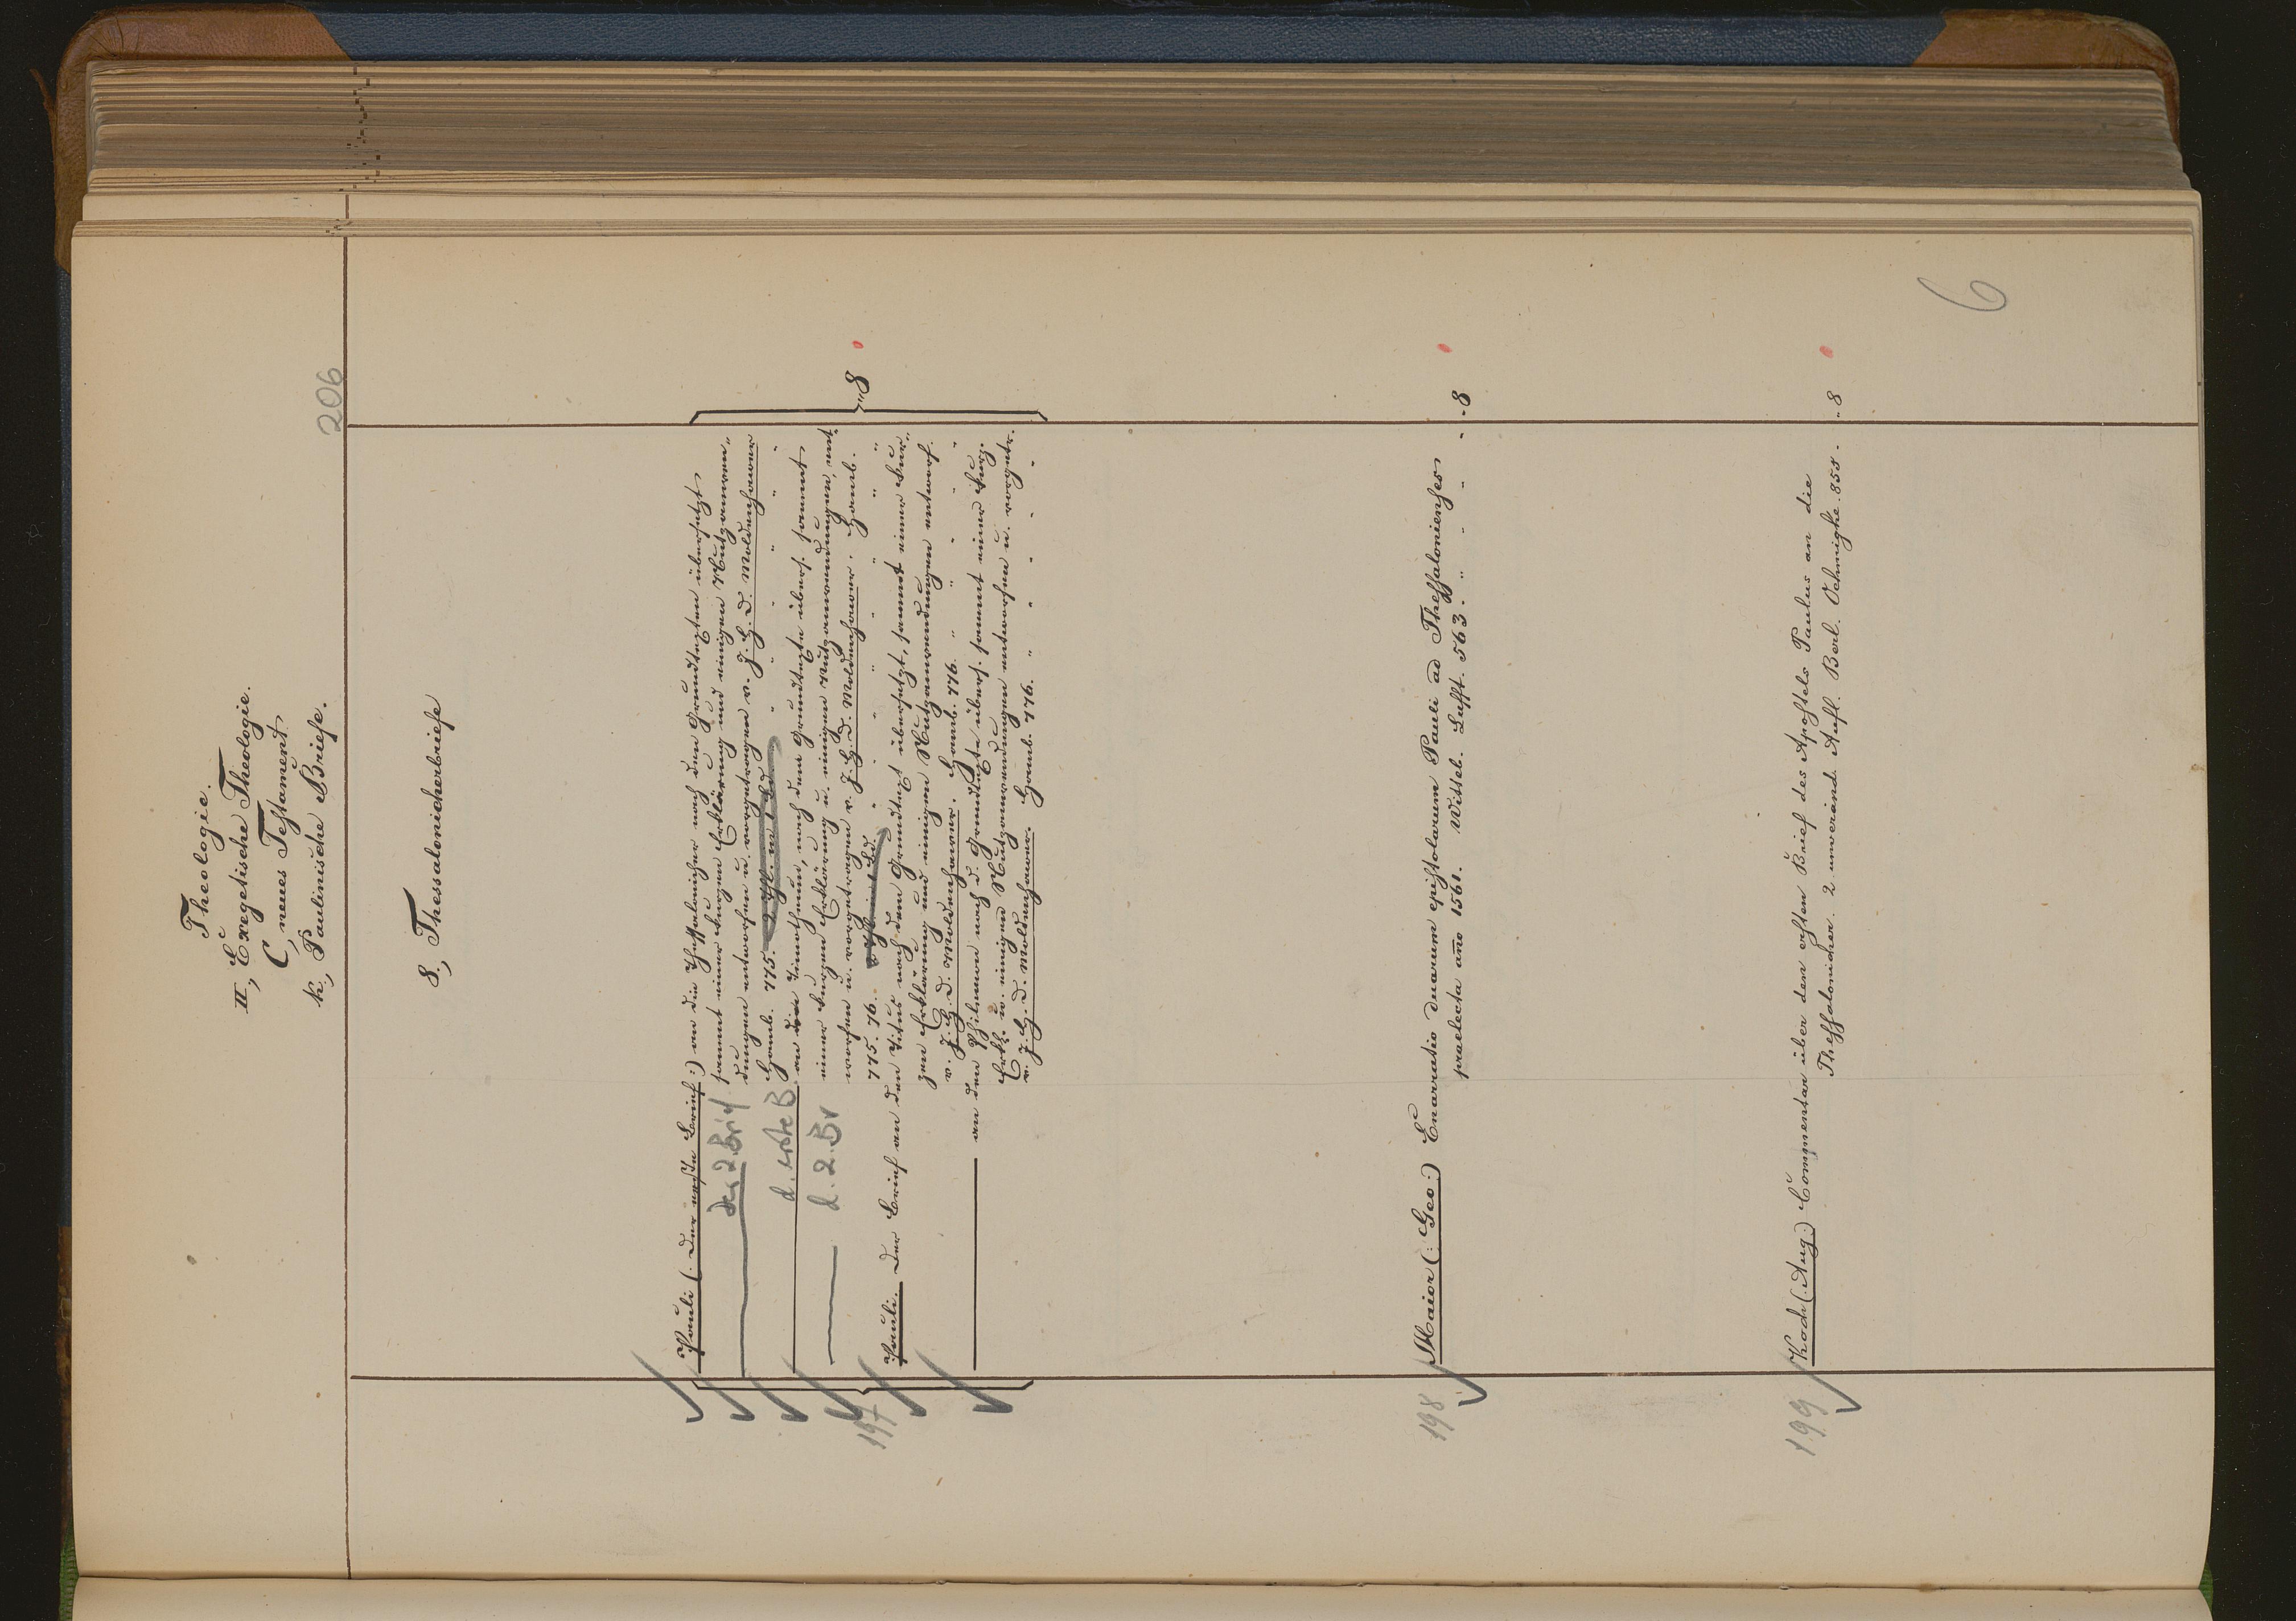 Theologie.
II, Exegetische Theologie.
C, neues Testament.
k., Paulinische Briefe.
206
8., Thessalonicherbriefe
Pauli (: Der erste Brief :) an die Thessalonicher nach den Grundtexten übersetzt
sammt einer kurzen Erklärung und einigen Nutzanwen„
der 2. Brief
dungen entworfen u. vorgetragen v. J. H. D. Moldenhawer
Hamb. 775. 2 Thl. in 1 Bd.
d. erste B
an die Timotheum, nach dem Grundtexte übers. sammt
einer kurzen Erklärung u. einigen Nutzanwendungen, ent„
d. 2. Br
worfen u. vorgetragen v. J. H. D. Moldenhawer. Hamb.
775. 76. 2 Thl. in 1 Bd.
„8
197
Pauli. Der Brief an den Titus nach dem Grundtext übersetzt, sammt einer kur„
zen Erklärung und einigen Nutzanwendungen entworf.
v. J. H. D. Moldenhawer. Hamb. 776.
an den Philemon nach d. Grundtexte übers. sammt einer kurz.
Erkl. u. einigen Nutzanwendungen entworfen u. vorgetr.
v. J. H. D. Moldenhawer. Hamb. 776.
198
Maior (: Geo :) Enarratio duarum epistolarum Pauli ad Thessalonienses
praelecta año 1561. Witteb. Lufft. 563. „ - - - 8
199
Koch (: Aug :) Commentar über den ersten Brief des Apostels Paulus an die
Thessalonicher. 2 unveränd. Aufl. Berl. Oehmigke. 855. „ 8
6